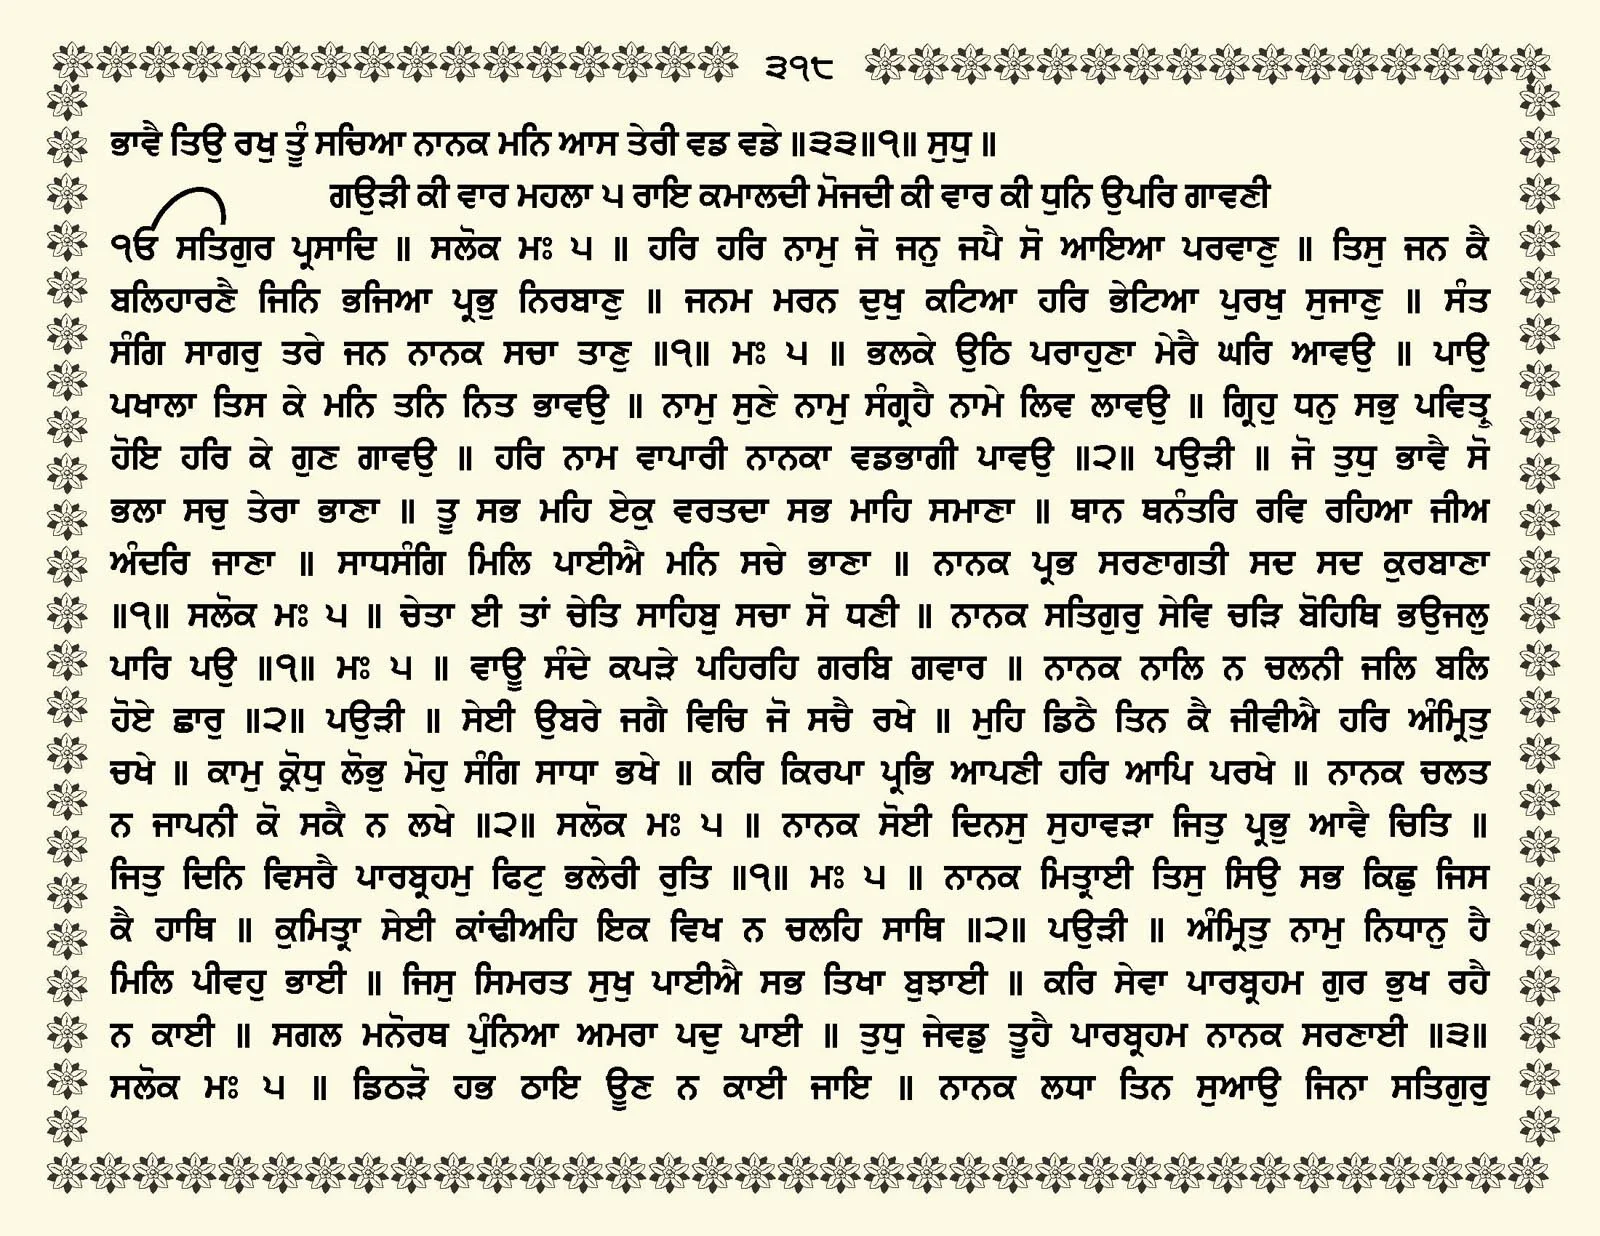 ੩੧੮
ਭਾਵੈ ਤਿਉ ਰਖੁ ਤੂੰ ਸਚਿਆ ਨਾਨਕ ਮਨਿ ਆਸ ਤੇਰੀ ਵਡ ਵਡੇ ॥੩੩॥੧॥ ਸੁਧੁ ॥
ਗਉੜੀ ਕੀ ਵਾਰ ਮਹਲਾ ੫ ਰਾਇ ਕਮਾਲਦੀ ਮੋਜਦੀ ਕੀ ਵਾਰ ਕੀ ਧੁਨਿ ਉਪਰਿ ਗਾਵਣੀ
ੴ ਸਤਿਗੁਰ ਪ੍ਰਸਾਦਿ ॥ ਸਲੋਕ ਮਃ ੫ ॥ ਹਰਿ ਹਰਿ ਨਾਮੁ ਜੋ ਜਨੁ ਜਪੈ ਸੋ ਆਇਆ ਪਰਵਾਣੁ ॥ ਤਿਸੁ ਜਨ ਕੈ
ਬਲਿਹਾਰਣੈ ਜਿਨਿ ਭਜਿਆ ਪ੍ਰਭੁ ਨਿਰਬਾਣੁ ॥ ਜਨਮ ਮਰਨ ਦੁਖੁ ਕਟਿਆ ਹਰਿ ਭੇਟਿਆ ਪੁਰਖੁ ਸੁਜਾਣੁ ॥ ਸੰਤ
ਸੰਗਿ ਸਾਗਰੁ ਤਰੇ ਜਨ ਨਾਨਕ ਸਚਾ ਤਾਣੁ ॥੧॥ ਮਃ ੫ ॥ ਭਲਕੇ ਉਠਿ ਪਰਾਹੁਣਾ ਮੇਰੈ ਘਰਿ ਆਵਉ ॥ ਪਾਉ
ਪਖਾਲਾ ਤਿਸ ਕੇ ਮਨਿ ਤਨਿ ਨਿਤ ਭਾਵਉ ॥ ਨਾਮੁ ਸੁਣੇ ਨਾਮੁ ਸੰਗ੍ਰਹੈ ਨਾਮੇ ਲਿਵ ਲਾਵਉ ॥ ਗ੍ਰਿਹੁ ਧਨੁ ਸਭੁ ਪਵਿਤ੍ਰੁ
ਹੋਇ ਹਰਿ ਕੇ ਗੁਣ ਗਾਵਉ ॥ ਹਰਿ ਨਾਮ ਵਾਪਾਰੀ ਨਾਨਕਾ ਵਡਭਾਗੀ ਪਾਵਉ ॥੨॥ ਪਉੜੀ ॥ ਜੋ ਤੁਧੁ ਭਾਵੈ ਸੋ
ਭਲਾ ਸਚੁ ਤੇਰਾ ਭਾਣਾ ॥ ਤੂ ਸਭ ਮਹਿ ਏਕੁ ਵਰਤਦਾ ਸਭ ਮਾਹਿ ਸਮਾਣਾ ॥ ਥਾਨ ਥਨੰਤਰਿ ਰਵਿ ਰਹਿਆ ਜੀਅ
ਅੰਦਰਿ ਜਾਣਾ ॥ ਸਾਧਸੰਗਿ ਮਿਲਿ ਪਾਈਐ ਮਨਿ ਸਚੇ ਭਾਣਾ ॥ ਨਾਨਕ ਪ੍ਰਭ ਸਰਣਾਗਤੀ ਸਦ ਸਦ ਕੁਰਬਾਣਾ
॥੧॥ ਸਲੋਕ ਮਃ ੫ ॥ ਚੇਤਾ ਈ ਤਾਂ ਚੇਤਿ ਸਾਹਿਬੁ ਸਚਾ ਸੋ ਧਣੀ ॥ ਨਾਨਕ ਸਤਿਗੁਰੁ ਸੇਵਿ ਚੜਿ ਬੋਹਿਥਿ ਭਉਜਲੁ
ਪਾਰਿ ਪਉ ॥੧॥ ਮਃ ੫ ॥ ਵਾਊ ਸੰਦੇ ਕਪੜੇ ਪਹਿਰਹਿ ਗਰਬਿ ਗਵਾਰ ॥ ਨਾਨਕ ਨਾਲਿ ਨ ਚਲਨੀ ਜਲਿ ਬਲਿ
ਹੋਏ ਛਾਰੁ ॥੨॥ ਪਉੜੀ ॥ ਸੇਈ ਉਬਰੇ ਜਗੈ ਵਿਚਿ ਜੋ ਸਚੈ ਰਖੇ ॥ ਮੁਹਿ ਡਿਠੈ ਤਿਨ ਕੈ ਜੀਵੀਐ ਹਰਿ ਅੰਮ੍ਰਿਤੁ
ਚਖੇ ॥ ਕਾਮੁ ਕ੍ਰੋਧੁ ਲੋਭੁ ਮੋਹੁ ਸੰਗਿ ਸਾਧਾ ਭਖੇ ॥ ਕਰਿ ਕਿਰਪਾ ਪ੍ਰਭਿ ਆਪਣੀ ਹਰਿ ਆਪਿ ਪਰਖੇ ॥ ਨਾਨਕ ਚਲਤ
ਨ ਜਾਪਨੀ ਕੋ ਸਕੈ ਨ ਲਖੇ ॥੨॥ ਸਲੋਕ ਮਃ ੫ ॥ ਨਾਨਕ ਸੋਈ ਦਿਨਸੁ ਸੁਹਾਵੜਾ ਜਿਤੁ ਪ੍ਰਭੁ ਆਵੈ ਚਿਤਿ ॥
ਜਿਤੁ ਦਿਨਿ ਵਿਸਰੈ ਪਾਰਬ੍ਰਹਮੁ ਫਿਟੁ ਭਲੇਰੀ ਰੁਤਿ ॥੧॥ ਮਃ ੫ ॥ ਨਾਨਕ ਮਿਤ੍ਰਾਈ ਤਿਸੁ ਸਿਉ ਸਭ ਕਿਛੁ ਜਿਸ
ਕੈ ਹਾਥਿ ॥ ਕੁਮਿਤ੍ਰਾ ਸੇਈ ਕਾਂਢੀਅਹਿ ਇਕ ਵਿਖ ਨ ਚਲਹਿ ਸਾਥਿ ॥੨॥ ਪਉੜੀ ॥ ਅੰਮ੍ਰਿਤੁ ਨਾਮੁ ਨਿਧਾਨੁ ਹੈ
ਮਿਲਿ ਪੀਵਹੁ ਭਾਈ ॥ ਜਿਸੁ ਸਿਮਰਤ ਸੁਖੁ ਪਾਈਐ ਸਭ ਤਿਖਾ ਬੁਝਾਈ ॥ ਕਰਿ ਸੇਵਾ ਪਾਰਬ੍ਰਹਮ ਗੁਰ ਭੁਖ ਰਹੈ
ਨ ਕਾਈ ॥ ਸਗਲ ਮਨੋਰਥ ਪੁੰਨਿਆ ਅਮਰਾ ਪਦੁ ਪਾਈ ॥ ਤੁਧੁ ਜੇਵਡੁ ਤੂਹੈ ਪਾਰਬ੍ਰਹਮ ਨਾਨਕ ਸਰਣਾਈ ॥੩॥
ਸਲੋਕ ਮਃ ੫ ॥ ਡਿਠੜੋ ਹਭ ਠਾਇ ਊਣ ਨ ਕਾਈ ਜਾਇ ॥ ਨਾਨਕ ਲਧਾ ਤਿਨ ਸੁਆਉ ਜਿਨਾ ਸਤਿਗੁਰੁ